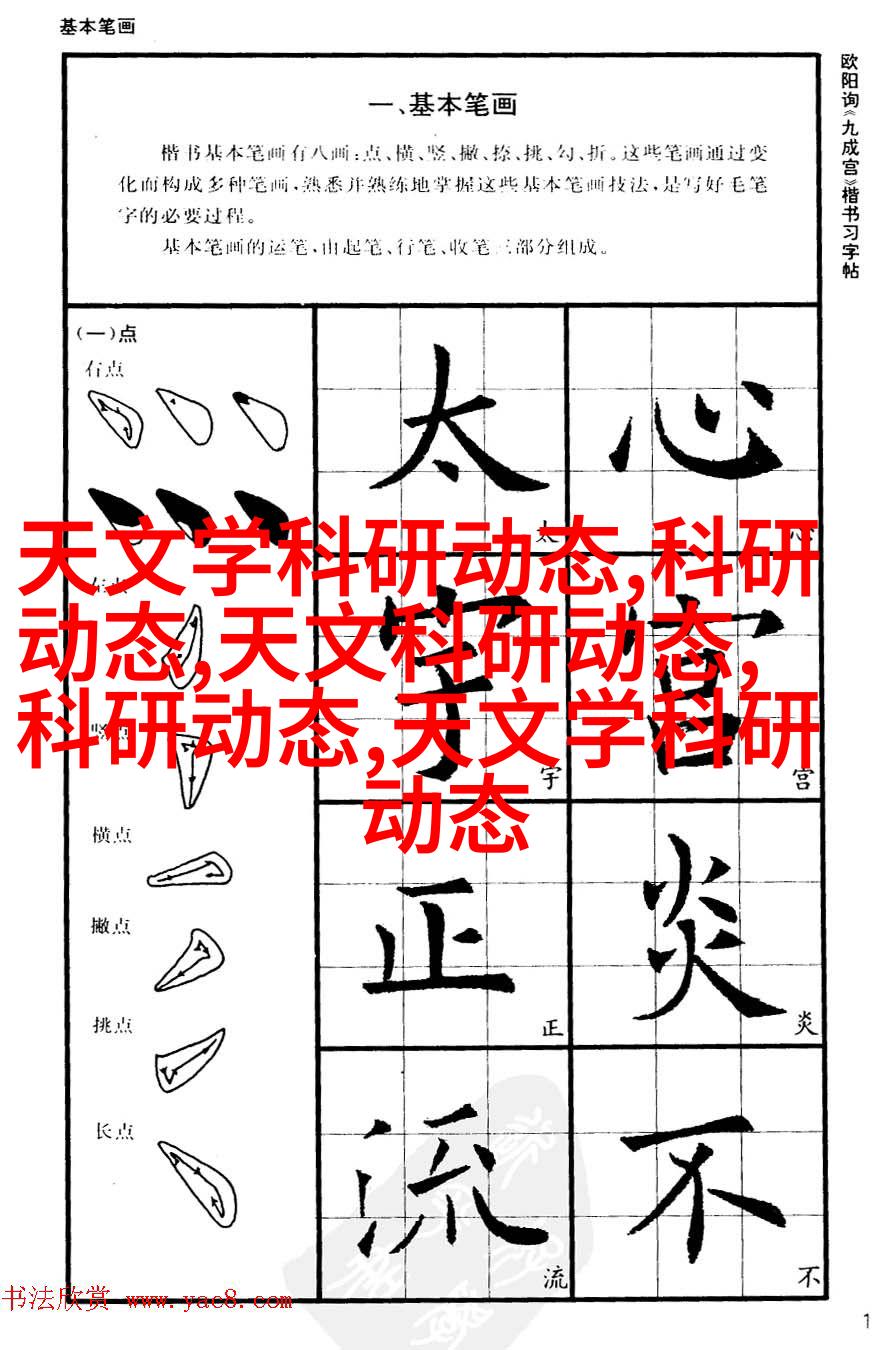 基本笔画
一、基本笔画
楷书基本笔画有八画:点、横、竖、撇、捺、挑、勾、折。这些笔画通过变
化而构成多种笔画,熟悉并熟练地掌握这些基本笔画技法,是写好毛笔
字的必要过程。
基本笔画的运笔,由起笔、行笔、收笔三部分组成。
欧阳询《九成宫》楷书习字帖
(一)点
右点
太
心
太
心
天文学科研动态,科研
动态,天文科研动态,
科研动态,天文学科研
动态
左点
竖点
字
宫
字
宫
横点
撇点
正
炎
正
炎
挑点
长点
流
不
流
不
书法欣赏 www.yac8.com
1